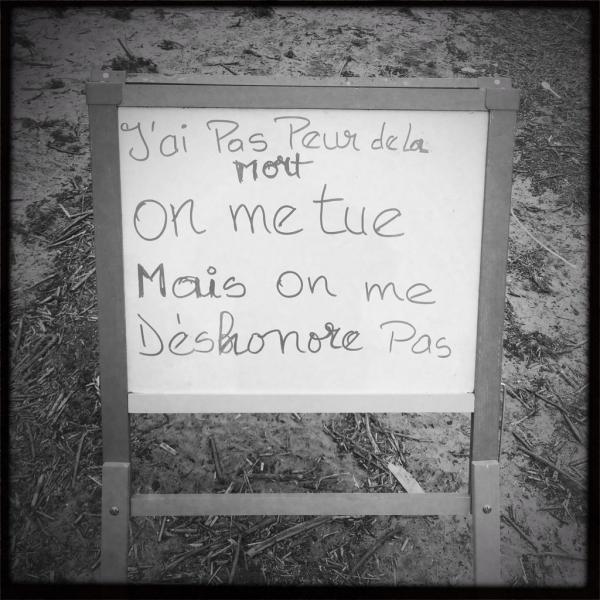 J'ai Pas Peur de la
Mort
On me tue
Mais on me
Déshonore Pas